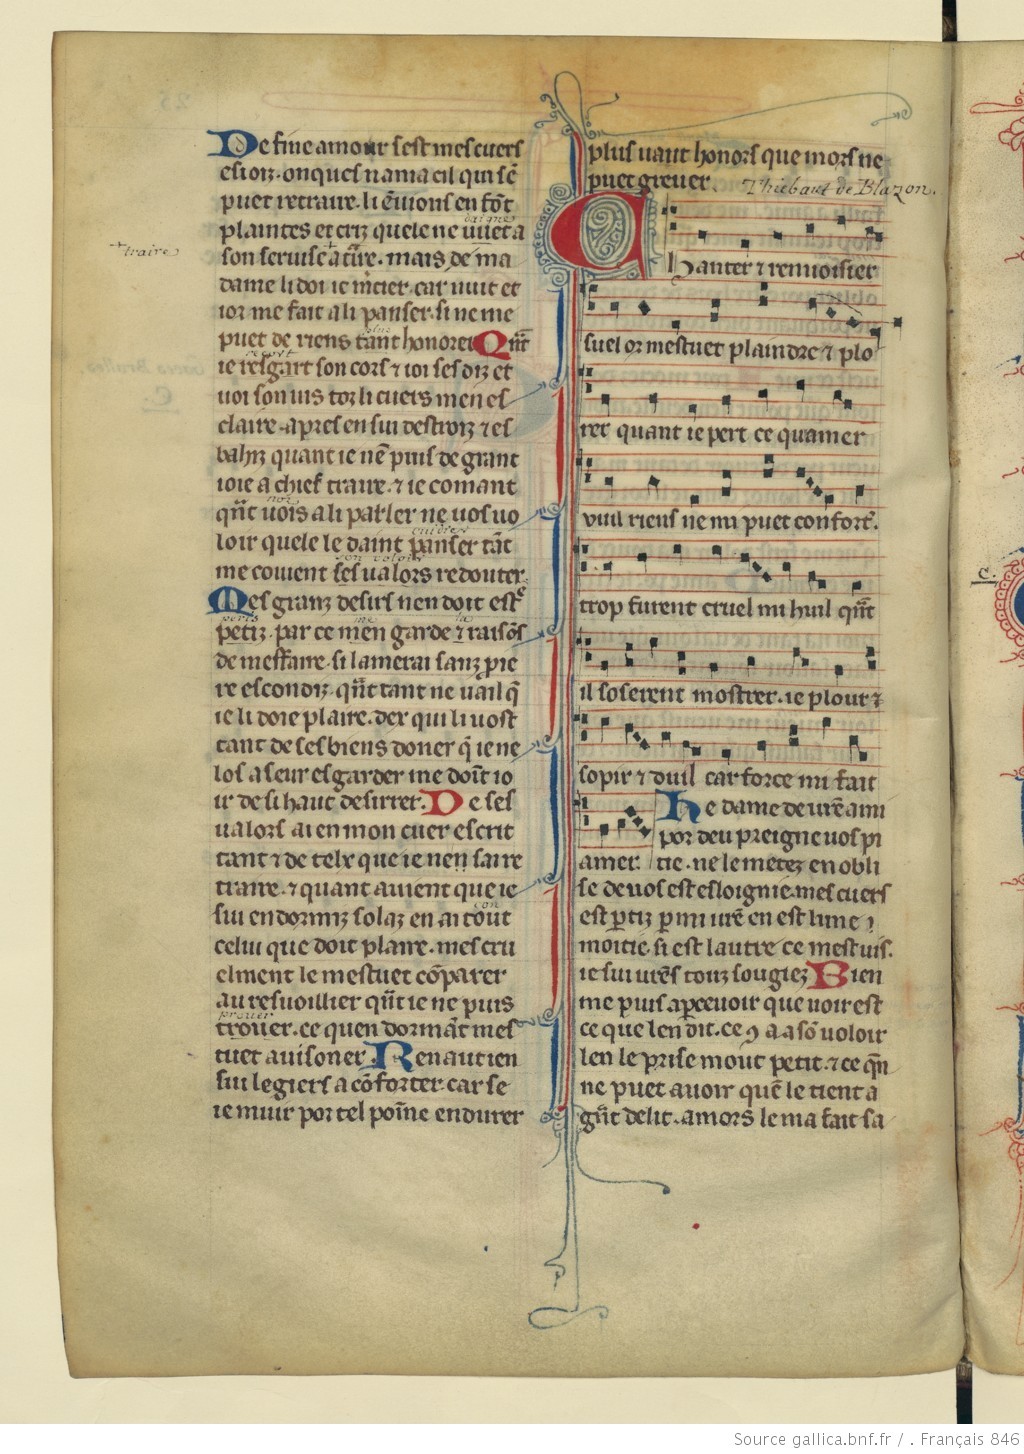 De fine amour s'est mes cuers
esioiz. onques n'ama cil qui s'ē
puet retraire. li
plaintes et criz quele ne
son seruise a
+traire
dame li doi ie mcier. car nuit et
ior me fait a li panser. si ne me
puet de riens tant honorer Qñt
ie resgart son cors & voi ses diz et
voi son uis toz li cuers men es
claire. apres en sui destroiz & es
bahiz quant ie nē puis de grant
ioie a chief traire. & ie comant
qñt uois a li parler ne uos uo
loir quele le daint panser tāt
me couient ses ualors redouter
Mes granz desirs nen doit estre
petiz. par ce men garde & raisōs
de meffaire. si lamerai sanz pre
re escondiz. qñt tant ne uail q̄
ie li doie plaire. dex qui li uost
tant de ses biens doner q̄ ie ne
los a seur esgarder me doīt io
ir de si haut desirrer. De ses
ualors ai en mon cuer escrit
tant & de telx que ie nen
traire. & quant auient que ie
sui endormiz solaz en ai tout
celui que doit plaire. mes cru
elment le mestuet cōparer
au resuoillier qñt ie ne puis
prouer
trouer. ce quen dormāt mes
tuet auisoner. Renaut ien
sui legiers a cōforter. car se
ie muir por tel poīne endurer
plus uaut honors que mors ne
puet greuer. Thiebaut de Blazon.
Chanter & renuoisier
suel or mestuet plaindre & plo
rer quant ie pert ce quamer
vuil riens ne mi puet confort'.
trop furent cruel mi huil qñt
il soserent mostrer. ie plour &
sopir & duil car force mi fait
amer. He dame de urē ami
por deu preigne uos pi
tie. ne le metez en obli
se de uos est esloignie. mes cuers
est ptiz p mi urē en est lune
moitie. si est lautre ce mest uis.
ie sui urēs touz sougiez Bien
me puis apceuoir que uoir est
ce que len dit. ce 9 a a sō uoloir
len le prise mout petit. & ce q̄n
ne puet auoir quē le tient a
gñt delit. amors le ma fait sa
C.
Source gallica.bnf.fr / . Français 846